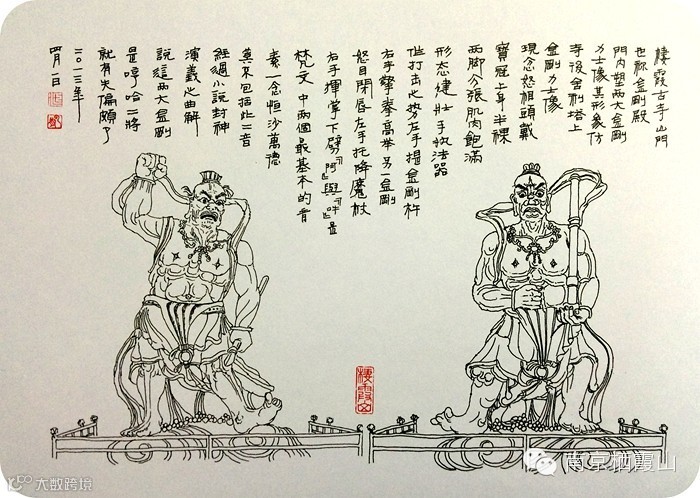 棲霞古寺山門
也称金剛殿
門内塑两大金剛
力士像其形象仿
寺後舍利塔上
金剛力士像
現忿怒相頭戴
寶冠上身半裸
两脚分張肌肉飽滿
形态健壮手执法器
作打击之势左手握金剛杵
右手擎拳高举另一金剛
怒目閉唇左手托降魔杖
右手揮掌下劈「阿」與「吽」是
梵文中兩個最基本的音
素一念恒沙萬德
莫不包括此二音
經過小說封神
演義之曲解
說這两大金剛
是哼哈二將
就有失偏頗了
二〇一三年
四月一日
棲霞山
大数跨境
南京栖霞山